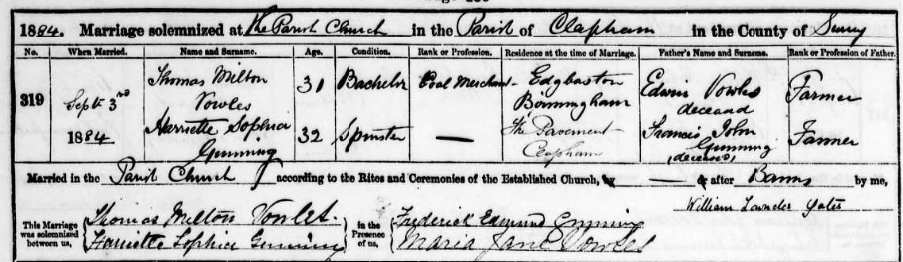 1884. Marriage solemnized at the Parish Church in the Parish of Clapham in the County of Surrey
No. When Married. Name and Surname. Age. Condition. Rank or Profession. Residence at the time of Marriage. Father's Name and Surname. Rank or Profession of Father.
319 Sept 3rd 1884 Thomas Milton Vowles 31 Bachelor Coal Merchant Edgbaston Birmingham Edwin Vowles deceased Farmer
Harriette Sophia Gunning 32 Spinster — The Pavement Clapham Francis John Gunning deceased Farmer
Married in the Parish Church according to the Rites and Ceremonies of the Established Church, by — or after Banns by me,
William Yates
This Marriage was solemnized between us, Thomas Milton Vowles. Harriette Sophia Gunning in the Presence of us, Frederick Edmund Gunning Maria Jane Vowles